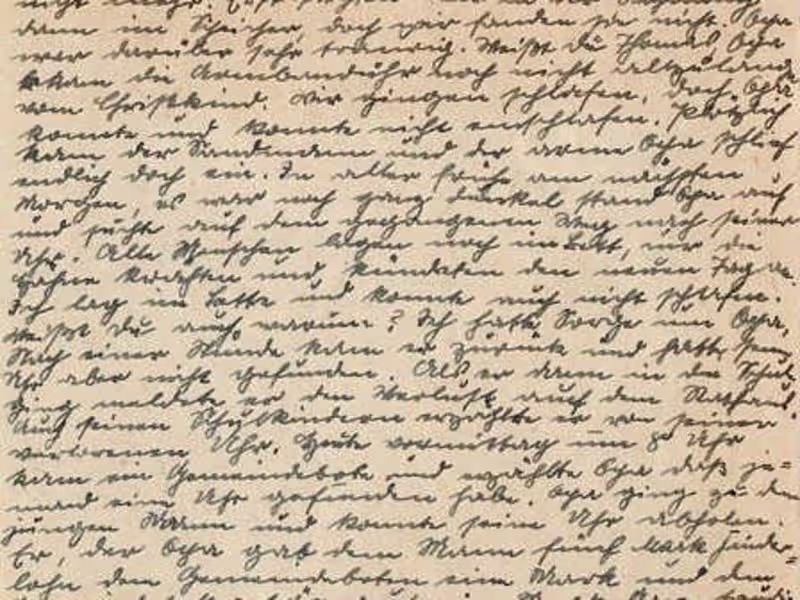 nicht mehr.
dann im Speicher, doch wir fanden sie nicht. Opa
war darüber sehr traurig. Weißt du Thomas Opa
bekam die Armbanduhr noch nicht allzulange
vom Christkind. Wir gingen schlafen, doch Opa
konnte und konnte nicht einschlafen. Plötzlich
kam der Sandmann und der arme Opa schlief
endlich doch ein. In aller Frühe am nächsten
Morgen, es war noch ganz dunkel stand Opa auf
und sucht auf dem gegangenen Weg nach seiner
Uhr. Alle Menschen lagen noch im Bett, nur die
Hähne krähten und kündeten den neuen Tag an.
Ich lag im Bette und konnte auch nicht schlafen.
Weißt du auch warum? Ich hatte Sorge um Opa.
Nach einer Stunde kam er zurück und hatte seine
Uhr aber nicht gefunden. Als er dann in die Schule
ging meldete er den Verlust auf dem Rathaus.
Auch seinen Schulkindern erzählte er von seiner
verlorenen Uhr. Heute vormittag um 8 Uhr
kam ein Gemeindebote und erzählte Opa daß je=
mand eine Uhr gefunden habe. Opa ging zu dem
jungen Mann und konnte seine Uhr abholen.
Er, der Opa gab dem Mann fünf Mark Finder=
lohn dem Gemeindeboten eine Mark und dem